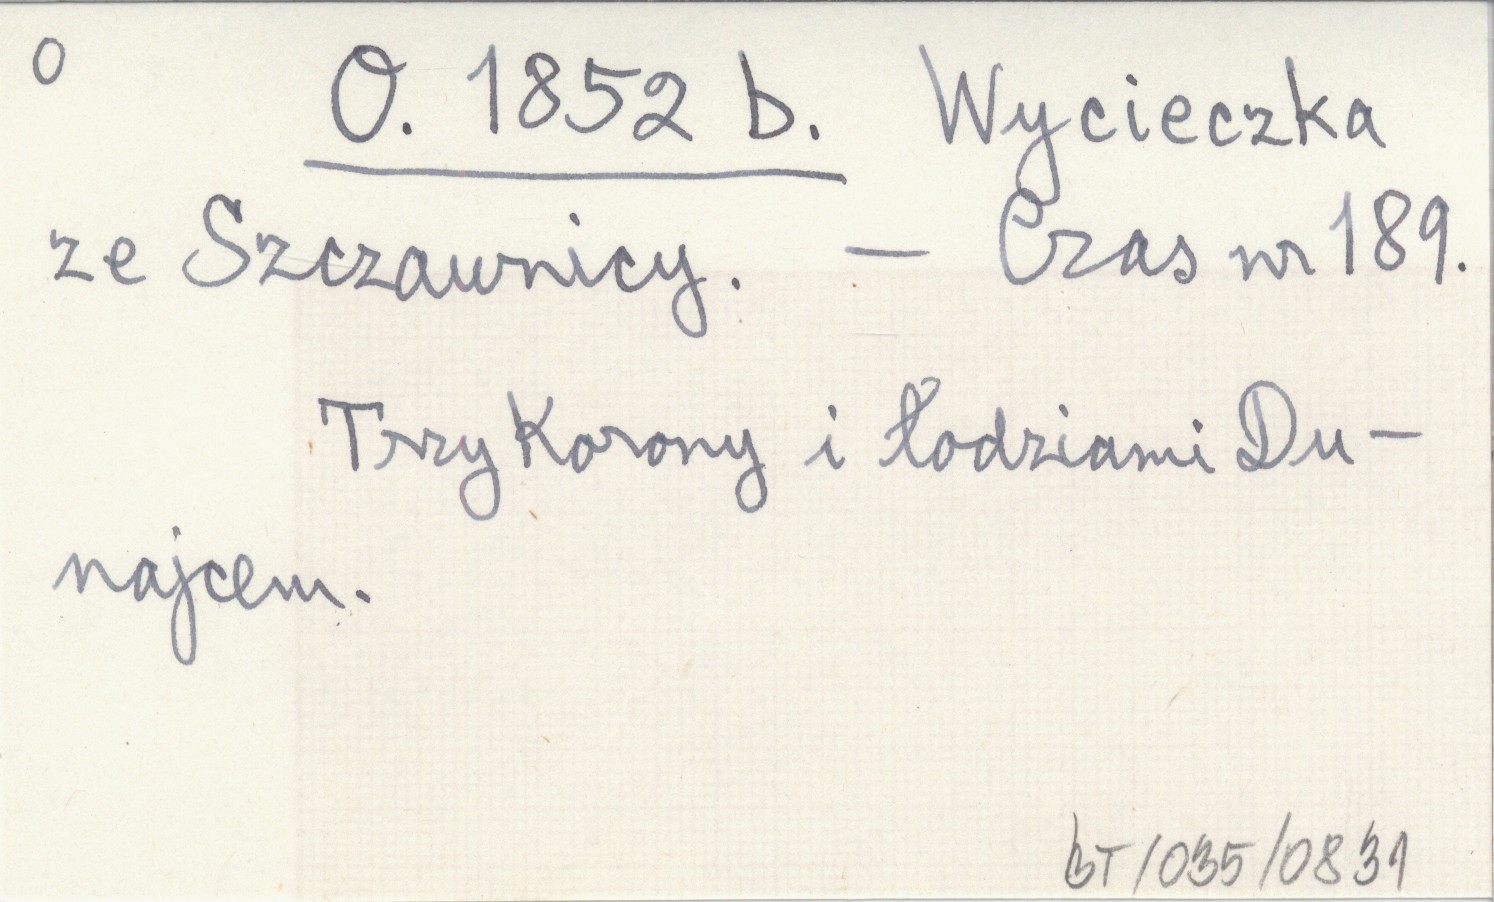 O
O. 1852 b. Wycieczka
ze Szczawnicy. — Czas nr 189.
Trzy Korony i łodziami Du-
najcem.
BT/035/0831